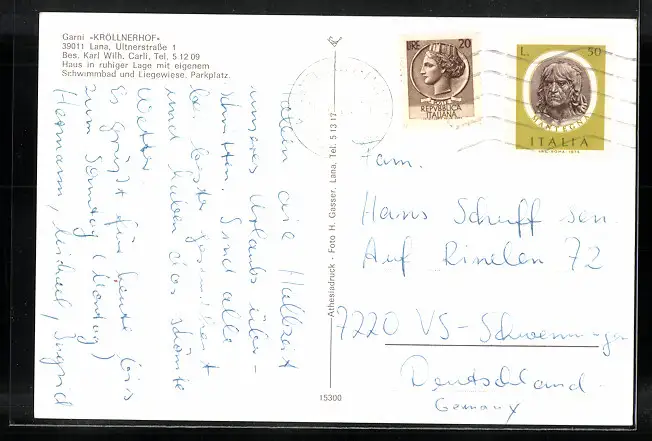 Garni «KRÖLLNERHOF»
39011 Lana, Ultnerstraße 1
Bes. Karl Wilh. Carli, Tel. 5 12 09
Haus in ruhiger Lage mit eigenem
Schwimmbad und Liegewiese. Parkplatz.
haben die Halbzeit
unseres Urlaubs über-
schritten. Sind alle
bei bester Gesundheit
und haben das schönste
Wetter.
Es grüßt für heute bis
zum Sonntag (Montag)
Hermann, Michael, Sigrid
Athesiadruck - Foto H. Gasser, Lana, Tel. 5 13 17
15300
LIRE 20
REPUBBLICA
ITALIANA
L. 50
MANTEGNA
ITALIA
Fam.
Hans Schuff sen.
Auf Rinelen 72
7220 VS-Schwenningen
Deutschland
Germany